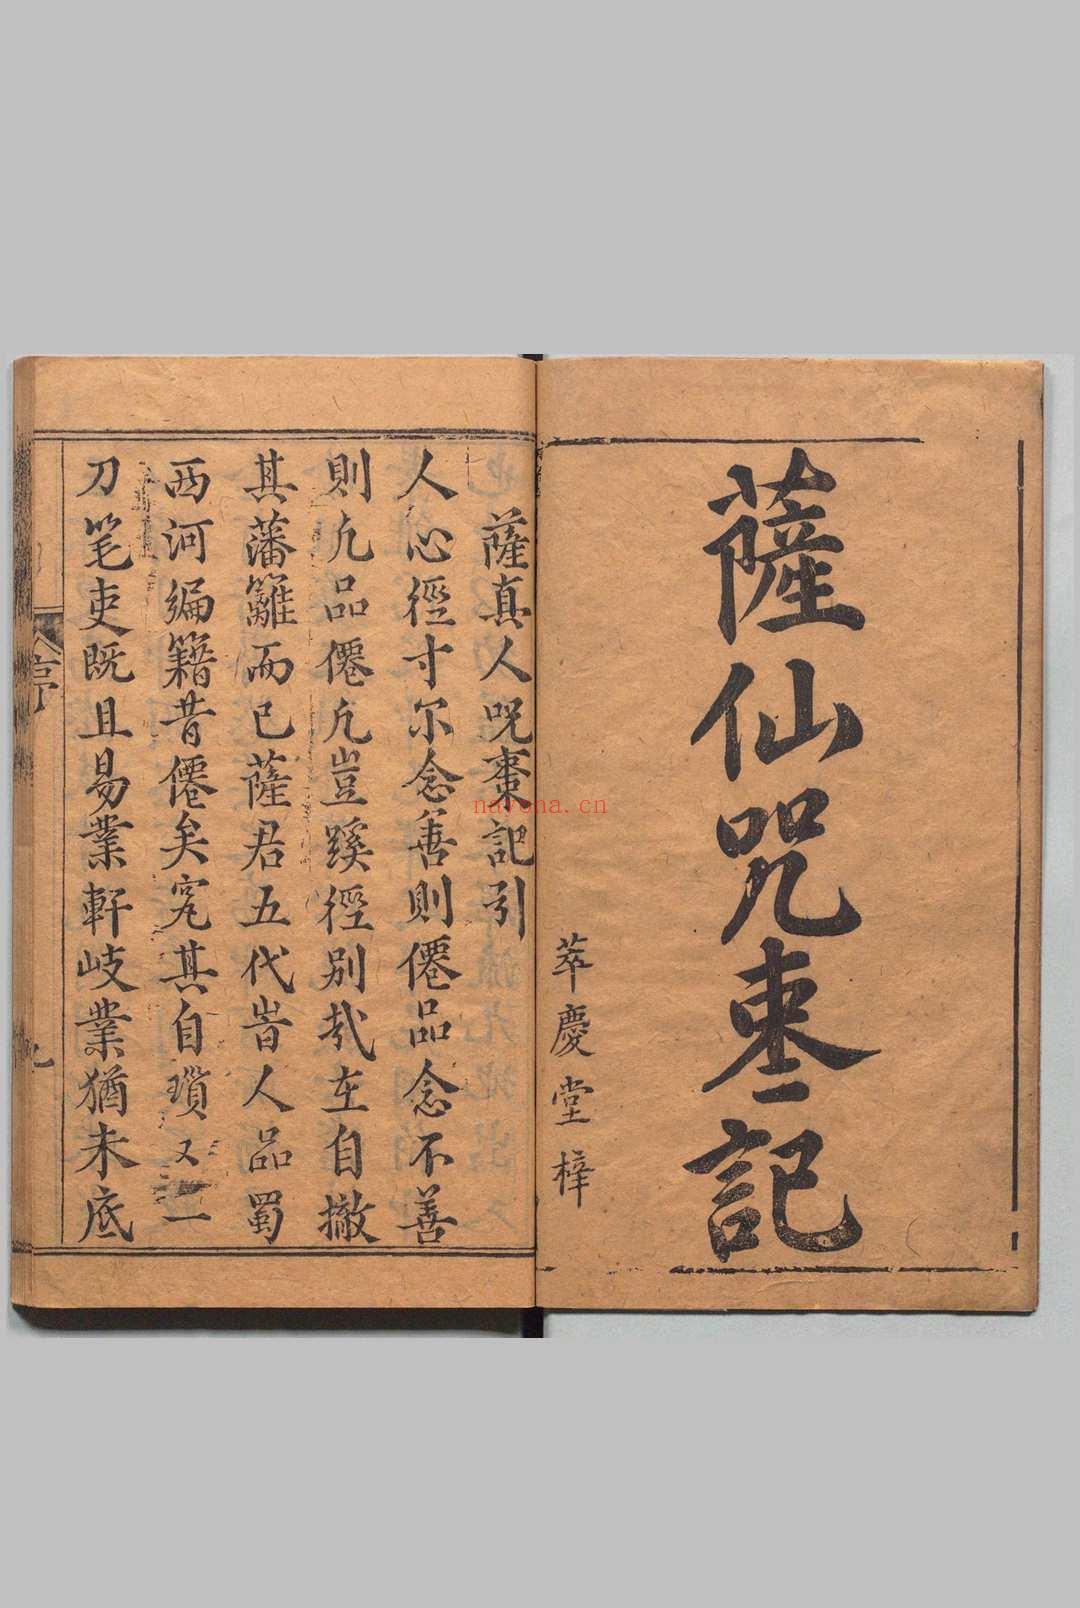 薩仙咒枣記
萃慶堂梓
薩真人咒棗記引
人心徑寸尔念善則僊品念不善
則凢品僊凢豈蹊徑別㢤在自撤
其藩籬而已薩君五代旹人品蜀
西河編籍昔僊矣究其自瑣又一
刀笔吏既且易業軒岐業猶未底
序
nayona.cn